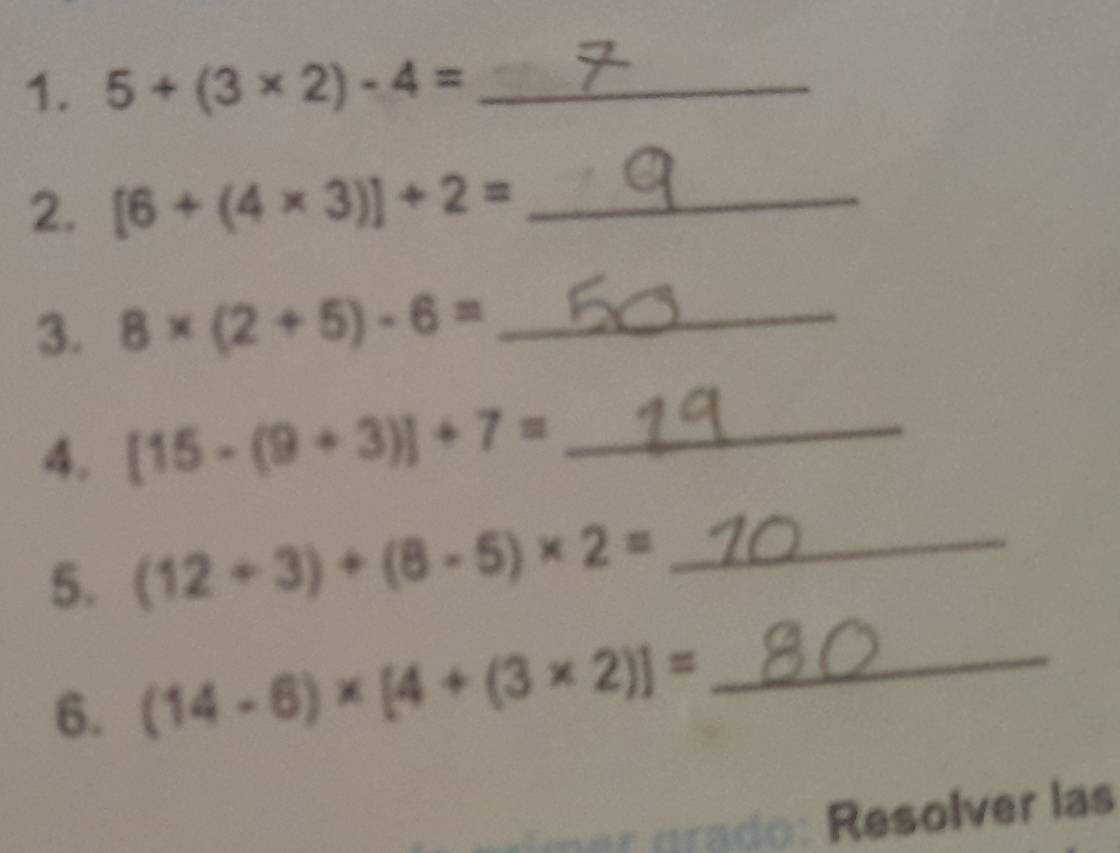 1. 5 + (3 × 2) - 4 = 7
2. [6 + (4 × 3)] ÷ 2 = 9
3. 8 × (2 + 5) - 6 = 50
4. [15 - (9 ÷ 3)] + 7 = 19
5. (12 ÷ 3) + (8 - 5) × 2 = 10
6. (14 - 6) × [4 + (3 × 2)] = 80
primer grado: Resolver las